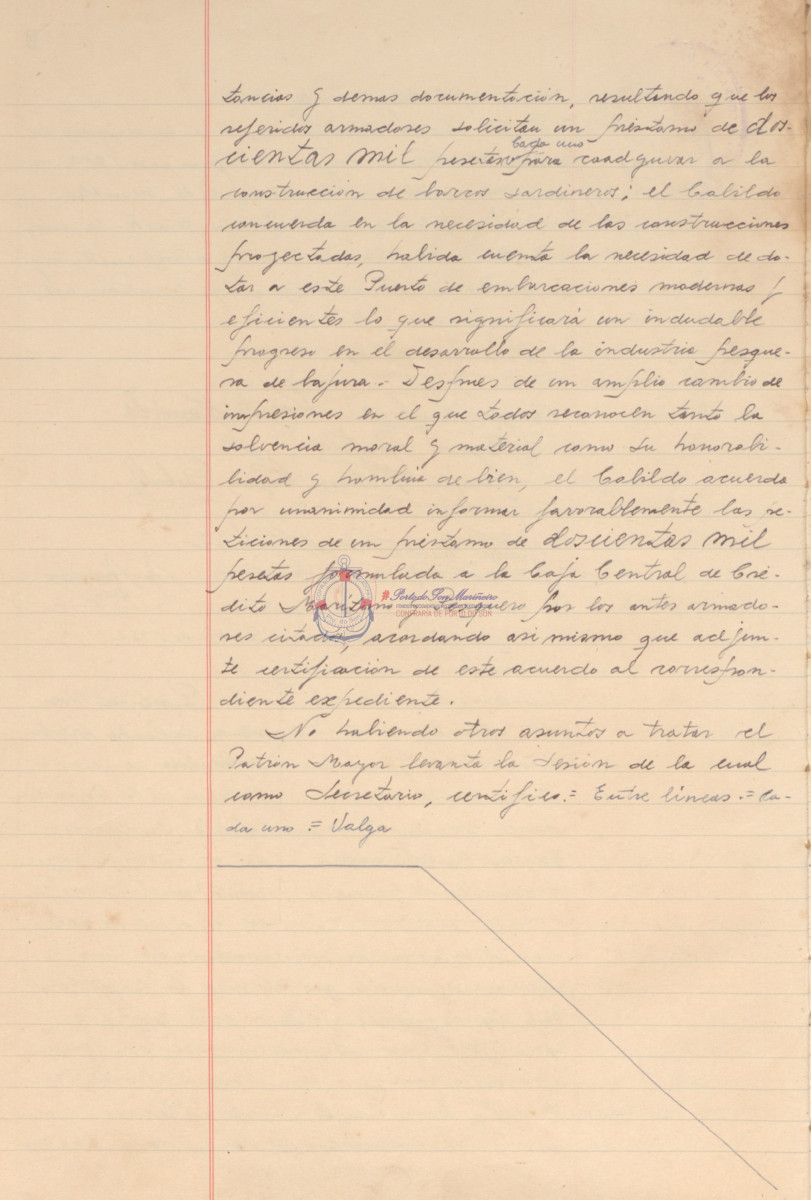 tancias y demas documentación, resultando que los
referidos armadores solicitan un préstamo de dos-
cientas mil pesetas para coadyuvar a la
Cada uno
construcción de barcos sardineros; el Cabildo
concuerda en la necesidad de las construcciones
proyectadas, habida cuenta la necesidad de do-
tar a este Puerto de embarcaciones modernas y
eficientes lo que significará un indudable
progreso en el desarrollo de la industria pesque-
ra de bajura.- Despues de un amplio cambio de
impresiones en el que todos reconocen tanto la
solvencia moral y material como su honorabi-
lidad y hombria de bien, el Cabildo acuerda
por unanimidad informar favorablemente las pe-
ticiones de un préstamo de doscientas mil
pesetas formulada a la Caja Central de Cré-
dito Marítimo y Pesquero por los antes armado-
res citados, acordando asi mismo que adjun-
te certificación de este acuerdo al correspon-
diente expediente.
No habiendo otros asuntos a tratar el
Patrón Mayor levanta la sesión de la cual
como Secretario, certifico.= Entre líneas.= Ca-
da uno = Valga
Porto do Son Mariñeiro
CONFRARÍA DE PORTO DO SON